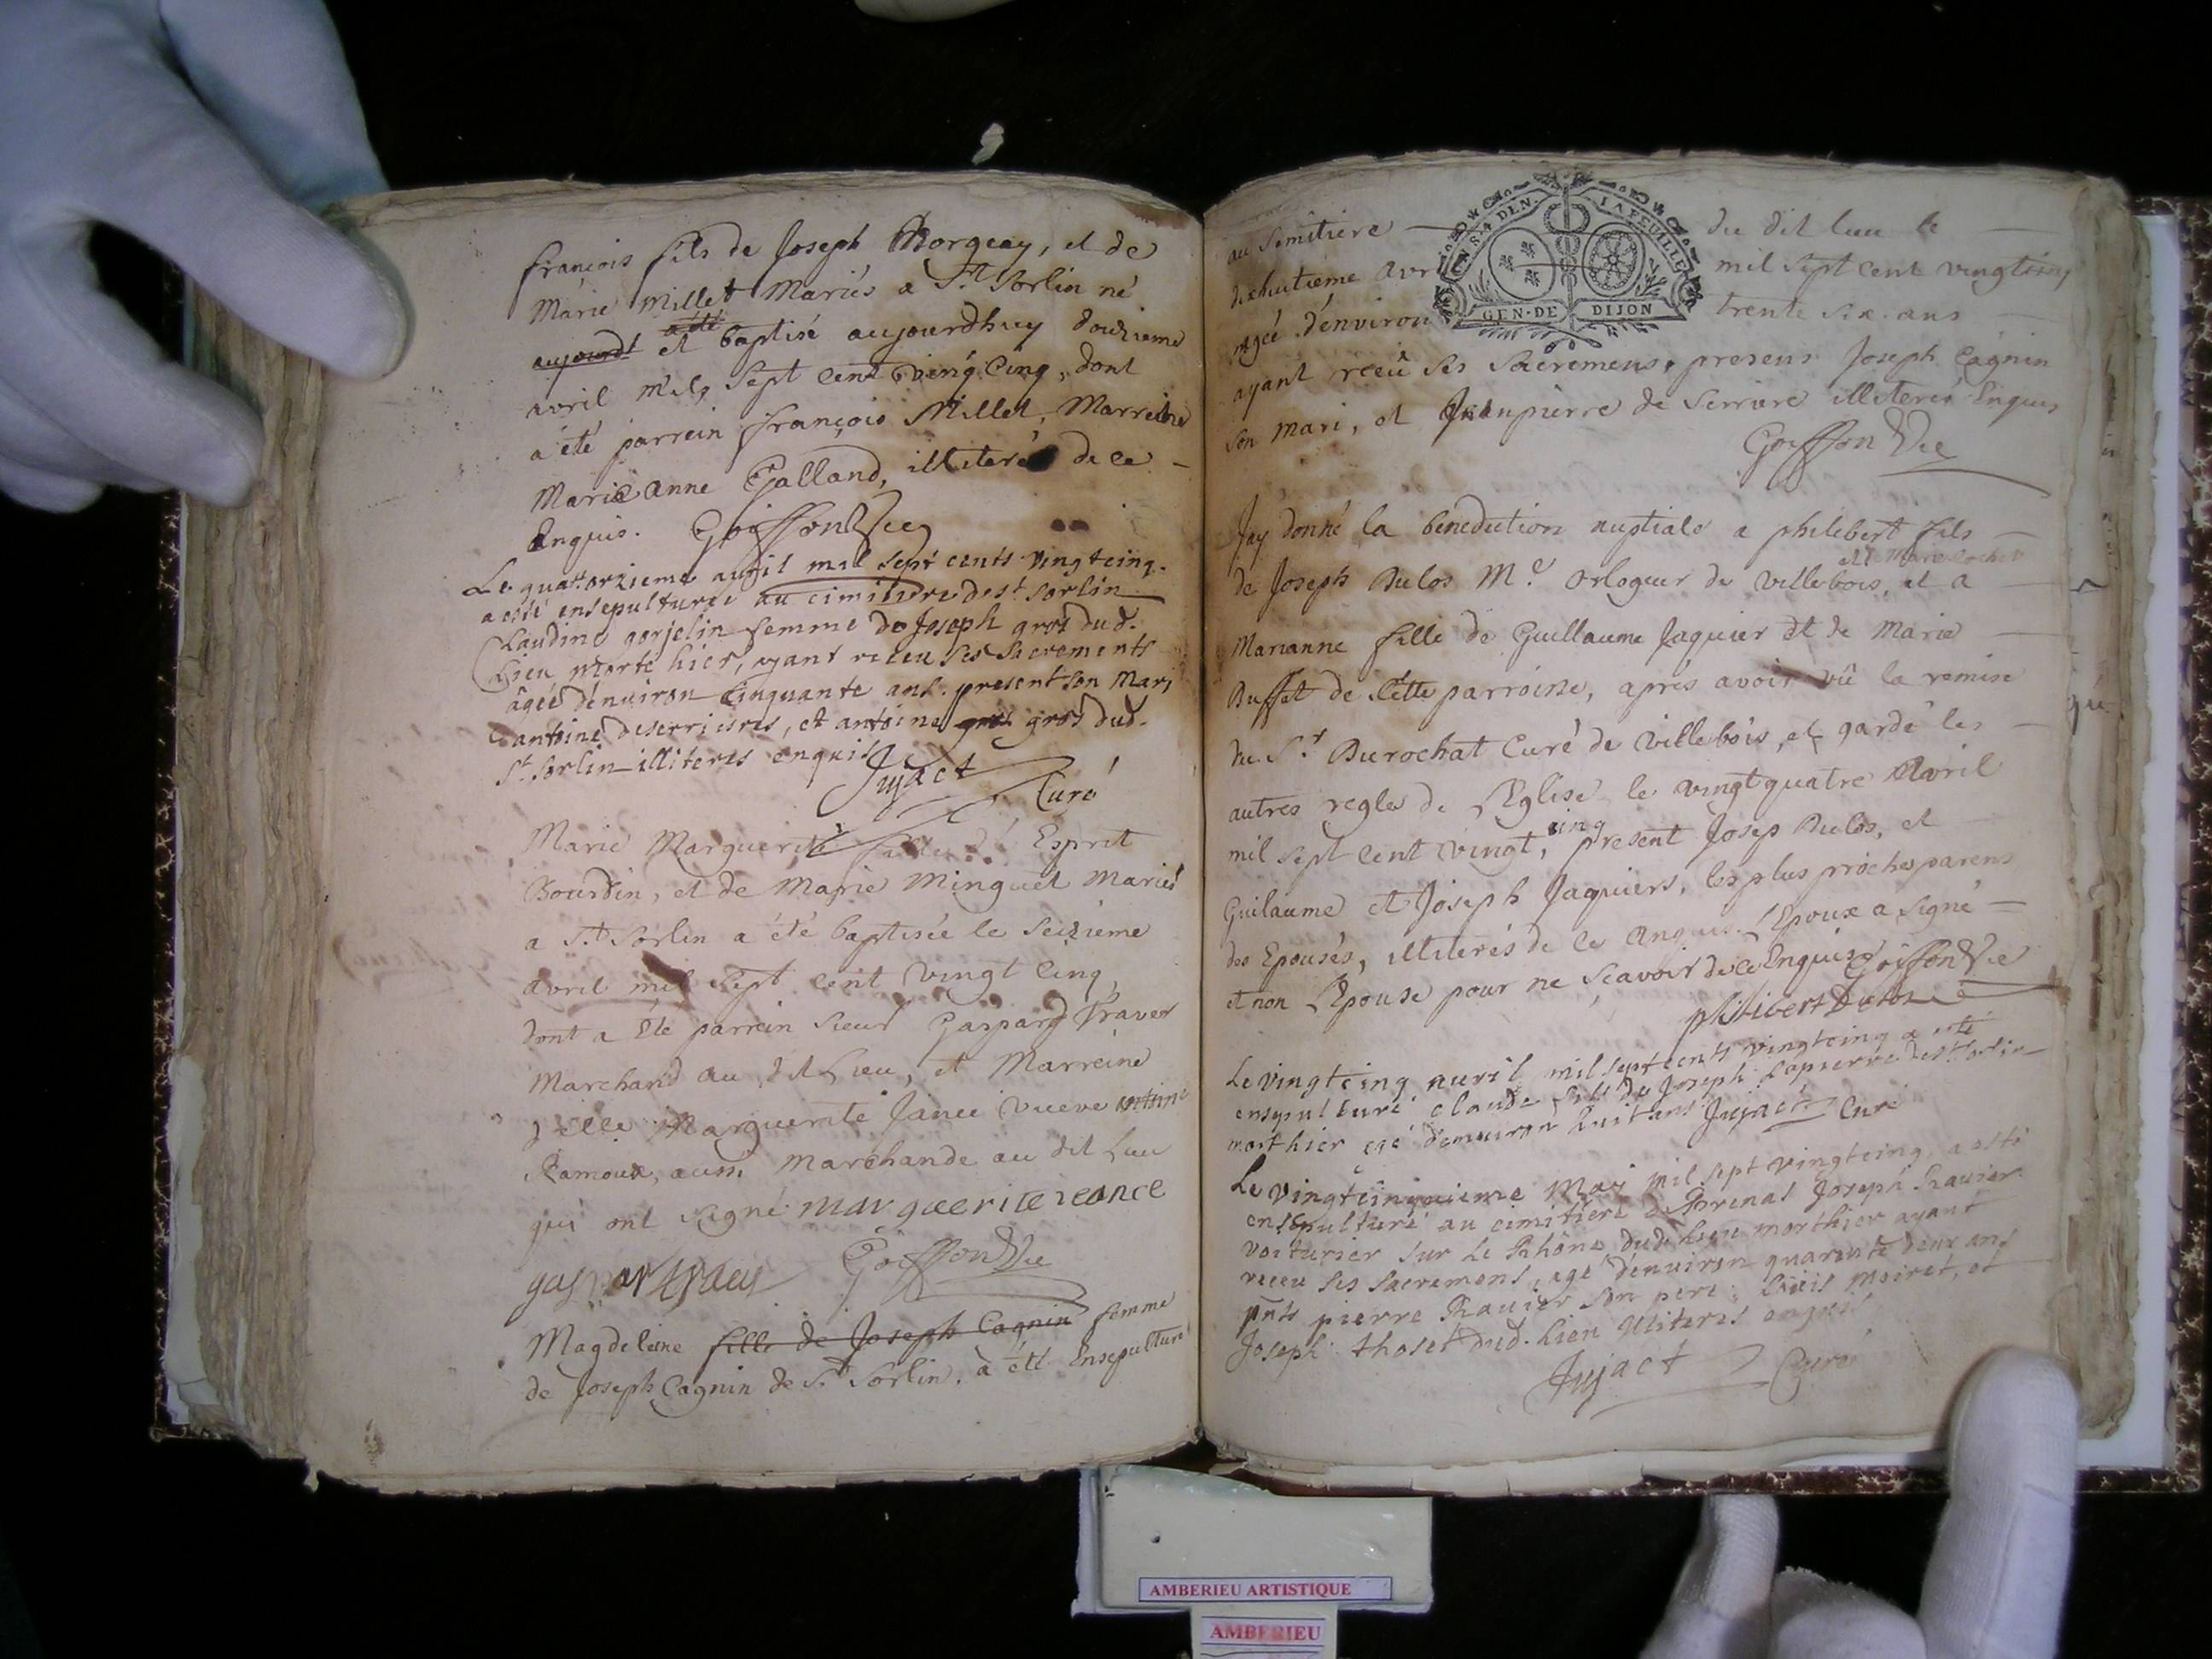 françois fils de Joseph Morgeay, et de
Marie Millet Mariés a St. Sorlin né
aujourdt a été et baptisé aujourdhuy douzieme
avril mil Sept cent ving Cinq, dont
a été parrein françois Millet, Marreine
Marie Anne Galland, illiterés de ce
Enquis. Goiffon Vic
Le quattorzieme auril mil sept cents vingtcinq.
a esté ensepulturée au cimitiere de st. Sorlin
Claudine gorjelin femme de Joseph gros dud.
Lieu morte hier, ayant receu ses sacrements
âgée d'enuiron Cinquante ans. present son Mari
antoine deserrieres, et antoine gros gros dud.
St. Sorlin illiteres enquis
Jujact Curé
Marie Marguerite fille d'Esprit
Bourdin, et de Marie Minguet Mariés
a St. Sorlin a été baptisée le Seizieme
avril mil Sept cent vingt cinq
dont a été parrein sieur Gaspard Traver
Marchand au dit Lieu, et Marreine
delle Marguerite Jance vueve
Ramoux, aussi Marchande au dit Lieu
qui ont signé marguerite ieance
Goiffon Vic
Magdeleine fille de Joseph Cagnin femme
de Joseph Cagnin de St. Sorlin, a été Ensepulturé
au Simitiere du dit lieu le
dixhuitieme avril mil sept cent vingtcinq
EN S. 4 DEN. LA FEUILLE
GEN. DE DIJON
agée d'environ trente six ans
ayant receu ses Sacremens, presens Joseph Cagnin
son mari, et Jeanpierre de Serriere illeterés Enquis
Goiffon Vic
Jay donné la benediction nuptiale a philibert fils
et de Marie Cochet
de Joseph Dulos Me. orlogeur de Villebois, et a
Marianne fille de Guillaume Jaquier et de Marie
Buffet de Cette parroisse, aprés avoir vû la remise
du Sr. Durochat Curé de Villebois, et gardé les
autres regles de L'Eglise le vingt quatre Avril
mil sept cent vingt, cinq present Josep Dulos, et
Guilaume et Joseph Jaquiers, les plus proches parens
des Epousés, illiterés de ce Anquis. L'Epoux a signé
et non L'Epouse pour ne Scavoir de ce Enquise Goiffon Vic
philibert Dulos
Le vingtcinq auril mil septcents vingtcinq a esté
ensepulturé claude fils de Joseph Lapierre de st. Sorlin
mort hier agé d'enuiron huit ans Jujact Curé
Le vingtcinquieme May mil sept vingtcinq a esté
ensepulturé au cimitiere Joseph Rauier
voiturier sur Le Rhône dud. Lieu mort hier ayant
receu ses sacremens, agé d'enuiron quarante deux ans
pnts pierre Rauier son pere, Loüis Moiret, et
Joseph thoset dud. Lieu illiteres enquis
Jujact Curé
AMBERIEU ARTISTIQUE
AMBERIEU